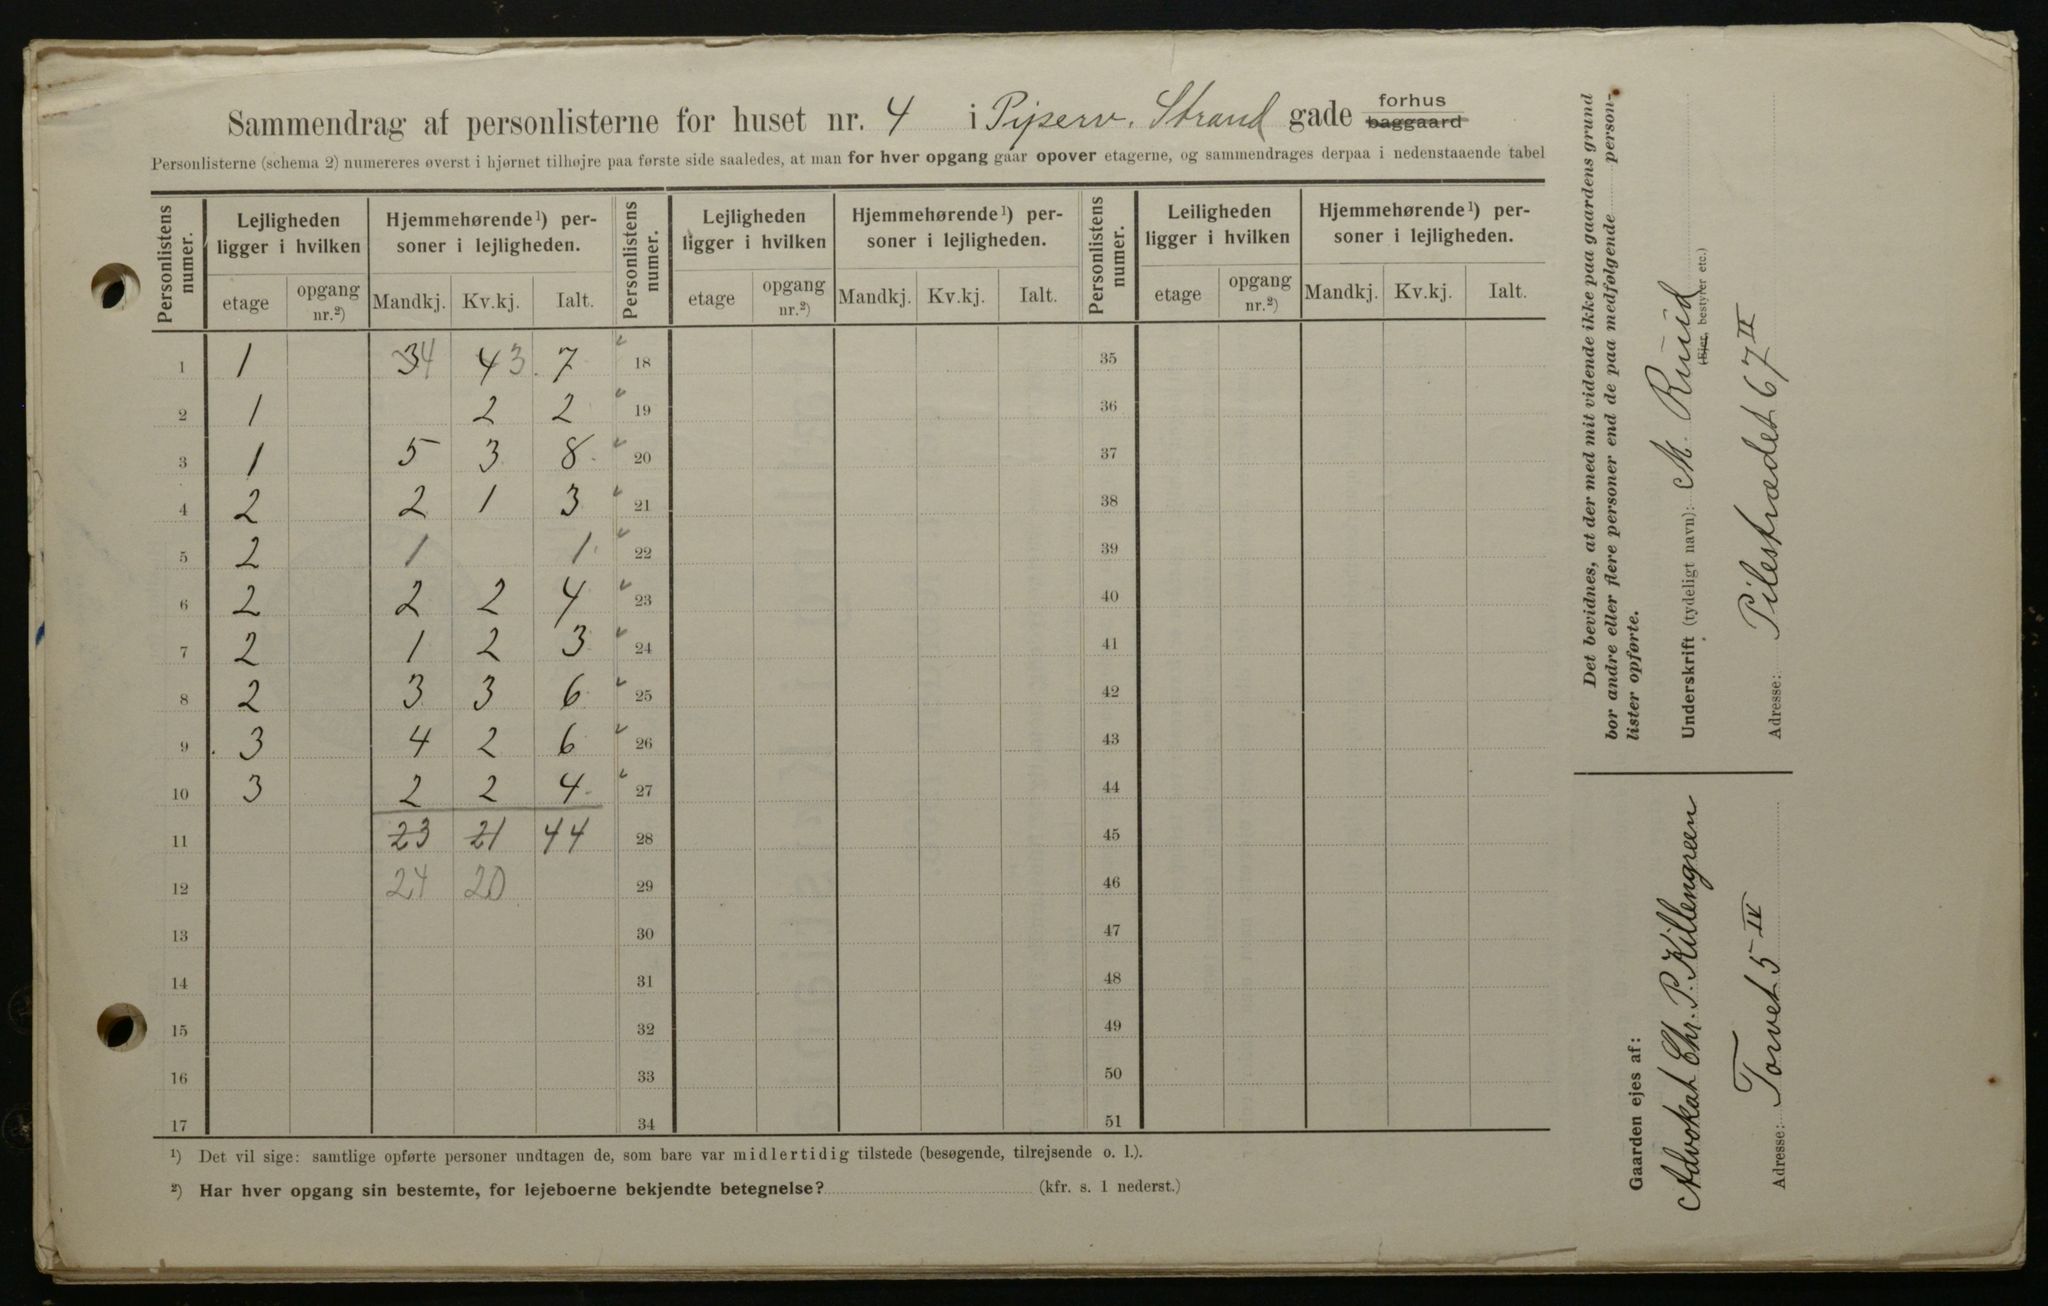 Sammendrag af personlisterne for huset nr. 4 i Pijperv. Strand gade forhus baggaard
Personlisterne (schema 2) numereres øverst i hjørnet tilhøjre paa første side saaledes, at man for hver opgang gaar opover etagerne, og sammendrages derpaa i nedenstaaende tabel
Personlistens numer. Lejligheden ligger i hvilken Hjemmehørende ¹) personer i lejligheden. Personlistens numer. Lejligheden ligger i hvilken Hjemmehørende ¹) personer i lejligheden. Personlistens numer. Leiligheden ligger i hvilken Hjemmehørende ¹) personer i lejligheden.
etage opgang nr.²) Mandkj. Kv.kj. Ialt. etage opgang nr.²) Mandkj. Kv.kj. Ialt. etage opgang nr.²) Mandkj. Kv.kj. Ialt.
1 1 3 4 4 3 7 18 35
2 1 2 2 19 36
3 1 5 3 8 20 37
4 2 2 1 3 21 38
5 2 1 1 22 39
6 2 2 2 4 23 40
7 2 1 2 3 24 41
8 2 3 3 6 25 42
9 3 4 2 6 26 43
10 3 2 2 4 27 44
11 23 21 44 28 45
12 24 20 29 46
13 30 47
14 31 48
15 32 49
16 33 50
17 34 51
¹) Det vil sige: samtlige opførte personer undtagen de, som bare var midlertidig tilstede (besøgende, tilrejsende o. l.).
²) Har hver opgang sin bestemte, for lejeboerne bekjendte betegnelse? (kfr. s. 1 nederst.)
Det bevidnes, at der med mit vidende ikke paa gaardens grund
bor andre eller flere personer end de paa medfølgende person-
lister opførte.
Underskrift (tydeligt navn): M. Ruud
(Ejer, bestyrer etc.)
Adresse: Pilestrædet 67 II
Gaarden ejes af:
Advokat Chr. P. Killengreen
Adresse: Torvet 5 IV